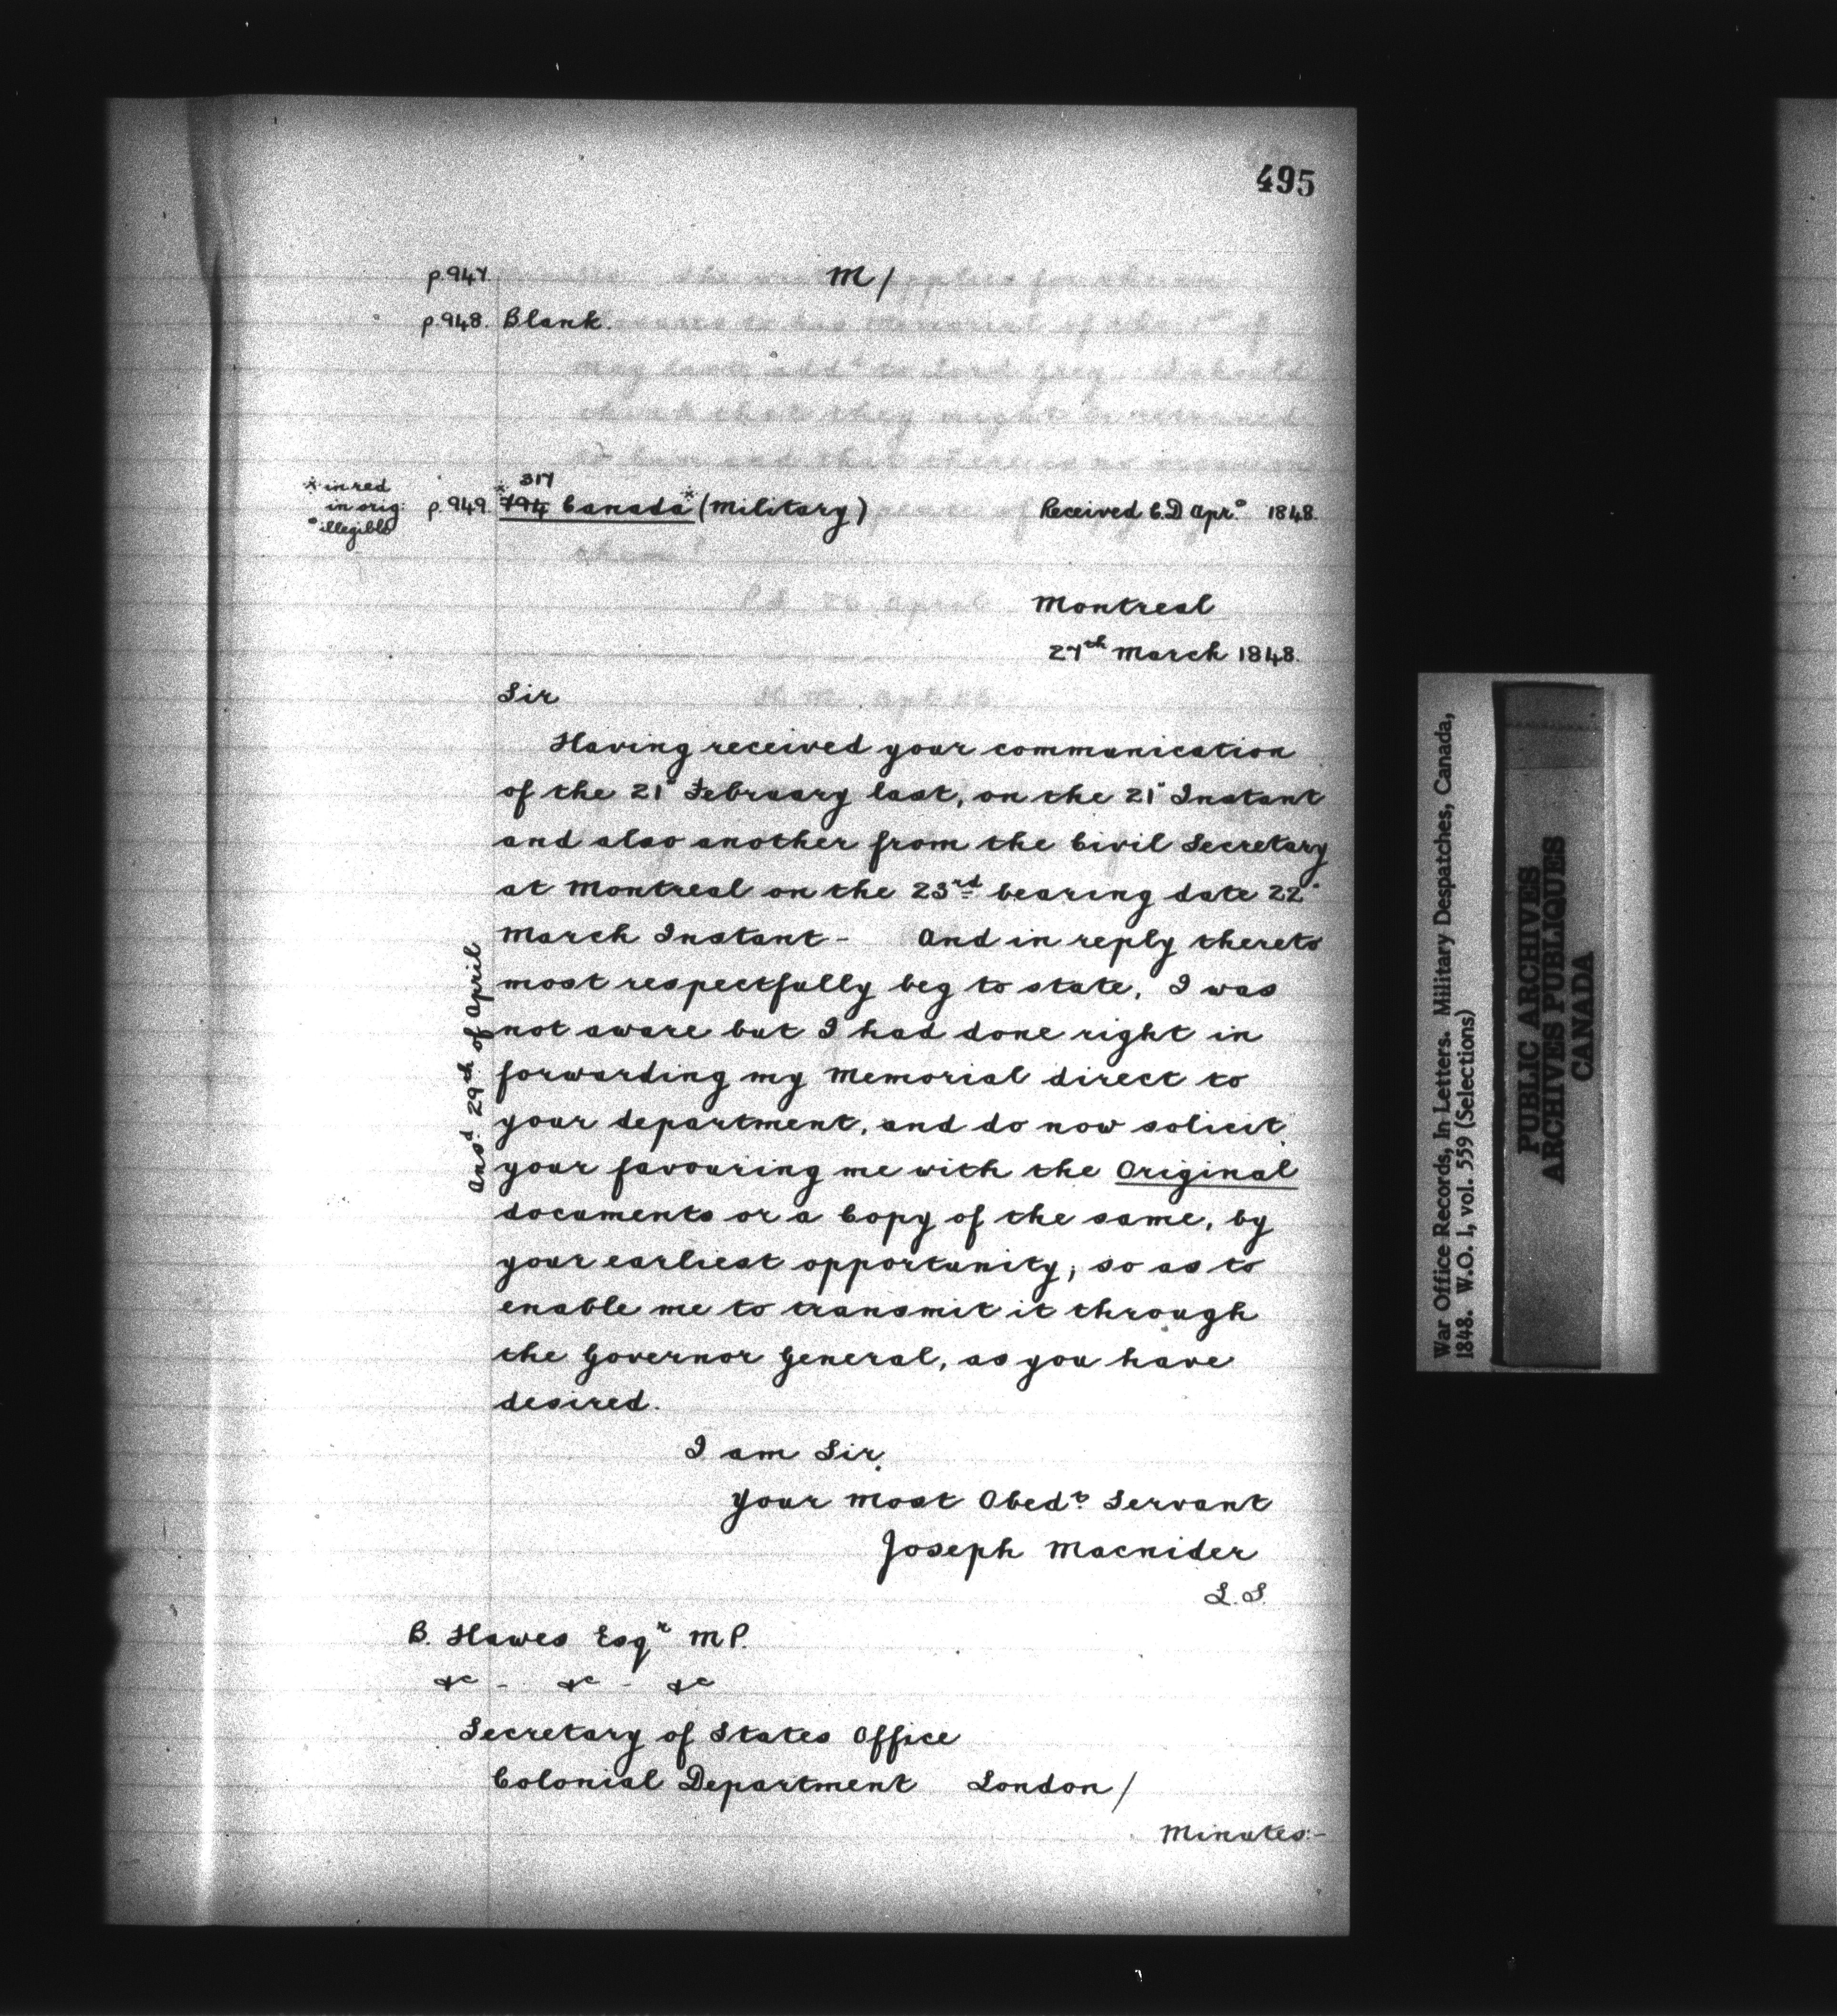 495
p.947. M/
p.948. Blank.
* in red
in orig:
° illegible
317
p.949. *794 Canada* (Military) Received C.D Apr.° 1848.
Montreal
27th March 1848.
Sir
Having received your communication
of the 21" February last, on the 21" Instant
and also another from the Civil Secretary
at Montreal on the 23rd bearing date 22"
March Instant - And in reply thereto
most respectfully beg to state, I was
not aware but I had done right in
forwarding my Memorial direct to
your department, and do now solicit
your favouring me with the Original
documents or a Copy of the same, by
your earliest opportunity; so as to
enable me to transmit it through
the Governor General, as you have
desired.
Ansd 29th of April
I am Sir,
Your Most Obedt Servant
Joseph Macnider
L.S.
B. Hawes Esqr M P.
&c - &c - &c
Secretary of States Office
Colonial Department London/
Minutes:-
War Office Records, In-Letters. Military Despatches, Canada,
1848. W.O. 1, vol. 559 (Selections)
PUBLIC ARCHIVES
ARCHIVES PUBLIQUES
CANADA